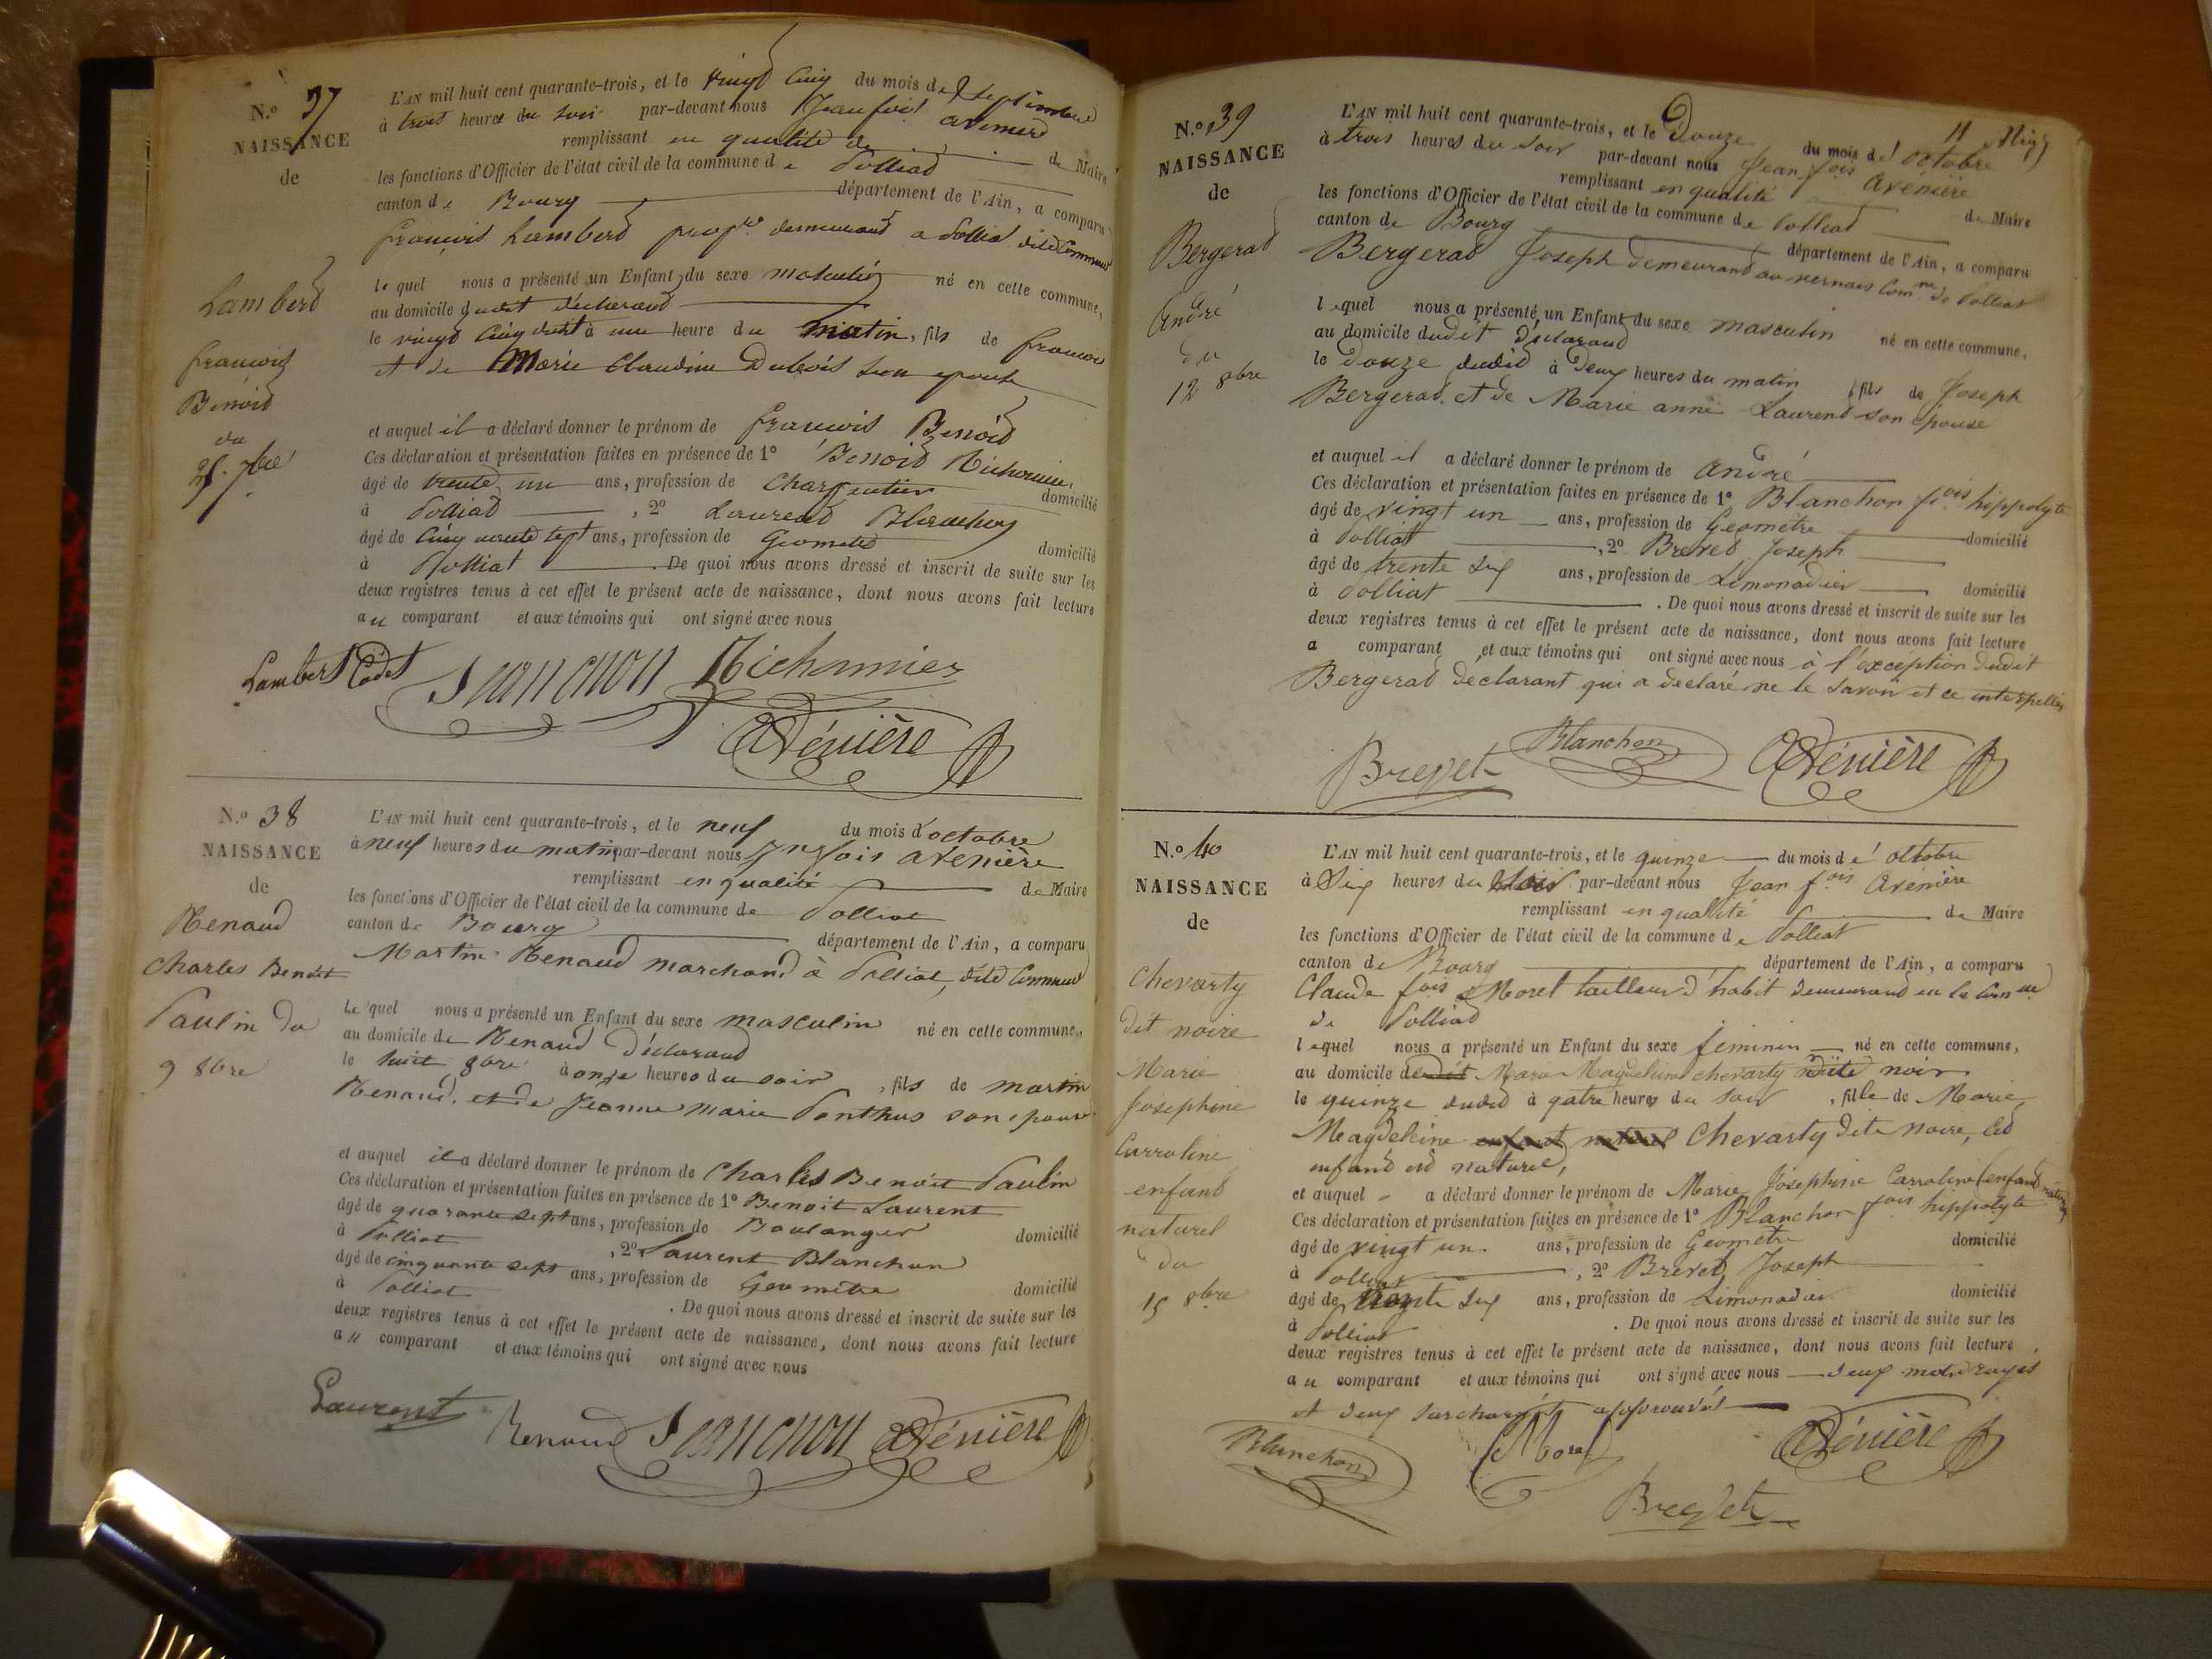 N.o 37
NAISSANCE
de
Lamberd
francois
Benoid
du
25. 7bre
L'AN mil huit cent quarante-trois, et le vingd Cinq du mois de Septembre
à trois heures du soir par-devant nous Jean fois avenierd
remplissant en qualité de de Maire
les fonctions d'Officier de l'état civil de la commune de Polliad
canton de Bourg département de l'Ain, a comparu
francois Lamberd propre demeurand a Polliad dite Commune
le quel nous a présenté un Enfant du sexe masculin né en cette commune,
au domicile dudit déclarand
le vingd Cinq dudit à une heure du matin, fils de francois
et de Marie Claudine Dubois son epouse
et auquel il a déclaré donner le prénom de francois Benoid
Ces déclaration et présentation faites en présence de 1o Benoid Richonnier
âgé de trente un ans, profession de Charpentier domicilié
à Polliad , 2o Laurend Blanchon
âgé de Cinq uente sept ans, profession de Geometre domicilié
à Polliat . De quoi nous avons dressé et inscrit de suite sur les
deux registres tenus à cet effet le présent acte de naissance, dont nous avons fait lecture
au comparant et aux témoins qui ont signé avec nous
Lambert Cadet Blanchon Richonnier
Avénière
N.o 38
NAISSANCE
de
Renaud
Charles Benoit
Paulin du
9 8bre
L'AN mil huit cent quarante-trois, et le neuf du mois d'octobre
à neuf heures du matin par-devant nous Jn fois avenière
remplissant en qualité de Maire
les fonctions d'Officier de l'état civil de la commune de Polliat
canton de Bourg département de l'Ain, a comparu
Martin Renaud marchand à Polliat, dite Commune
le quel nous a présenté un Enfant du sexe masculin né en cette commune,
au domicile de Renaud déclarand
le huit 8bre à onze heures du soir , fils de martin
Renaud, et de Jeanne marie Ponthus son epouse
et auquel il a déclaré donner le prénom de Charles Benoit Paulin
Ces déclaration et présentation faites en présence de 1o Benoit Laurent
âgé de quarante sept ans, profession de Boulanger domicilié
à Polliat , 2o Laurent Blanchon
âgé de cinquante sept ans, profession de Geometre domicilié
à Polliat . De quoi nous avons dressé et inscrit de suite sur les
deux registres tenus à cet effet le présent acte de naissance, dont nous avons fait lecture
au comparant et aux témoins qui ont signé avec nous
Laurent Renaud Blanchon Avénière
11
N.o 39
NAISSANCE
de
Bergerad
André
du
12 8bre
L'AN mil huit cent quarante-trois, et le Douze du mois de octobre
à trois heures du soir par-devant nous Jean fois avenière
remplissant en qualité de Maire
les fonctions d'Officier de l'état civil de la commune de Polliad
canton de Bourg département de l'Ain, a comparu
Bergerad Joseph demeurand au vernais Comne de Polliat
lequel nous a présenté un Enfant du sexe masculin né en cette commune,
au domicile dudit déclarand
le Douze dudid à deux heures du matin , fils de Joseph
Bergerad. et de Marie anne Laurend son épouse
et auquel il a déclaré donner le prénom de André
Ces déclaration et présentation faites en présence de 1o Blanchon fois hippolyte
âgé de vingt un ans, profession de Geometre domicilié
à Polliat , 2o Breved Joseph
âgé de trente six ans, profession de Limonadier domicilié
à Polliat . De quoi nous avons dressé et inscrit de suite sur les
deux registres tenus à cet effet le présent acte de naissance, dont nous avons fait lecture
a comparant et aux témoins qui ont signé avec nous à l'exception dudit
Bergerad déclarant qui a declaré ne le savoir et ce interpellés
Brevet Blanchon Avénière
N.o 40
NAISSANCE
de
Chevarty
dit noire
Marie
Josephine
Carroline
enfand
naturel
du
15 8bre
L'AN mil huit cent quarante-trois, et le quinze du mois de octobre
à Six heures du soir par-devant nous Jean fois avenière
remplissant en qualité de Maire
les fonctions d'Officier de l'état civil de la commune de Polliat
canton de Bourg département de l'Ain, a comparu
Claude fois Morel tailleur d'habit demeurand en la Comne
de Polliad
lequel nous a présenté un Enfant du sexe féminin né en cette commune,
au domicile dudit Marie Magdeleine chevarty dite noir
le quinze dudid à quatre heures du soir , fille de Marie
Magdeleine enfant naturel Chevarty dite noire, led
enfand est naturel,
et auquel a déclaré donner le prénom de Marie Josephine Carroline (enfand naturel
Ces déclaration et présentation faites en présence de 1o Blanchon fois hippolyte
âgé de vingt un ans, profession de Geometre domicilié
à Polliat , 2o Breved, Joseph
âgé de trente six ans, profession de Limonadier domicilié
à Polliat . De quoi nous avons dressé et inscrit de suite sur les
deux registres tenus à cet effet le présent acte de naissance, dont nous avons fait lecture
au comparant et aux témoins qui ont signé avec nous deux mots rayés
et deux surchargés approuvés
Blanchon Morel Avénière
Brevet